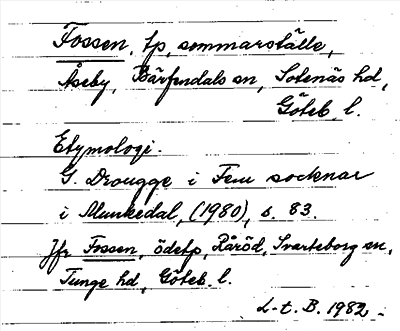 Fossen, tp, sommarställe,
Åseby, Bärfendals sn, Sotenäs hd,
Göteb. l.
Etymologi.
G. Drougge i Fem socknar
i Munkedal, (1980), s. 83.
Jfr Fossen, ödetp, Räröd, Svarteborg sn,
Tunge hd, Göteb. l.
L-t. B. 1982.